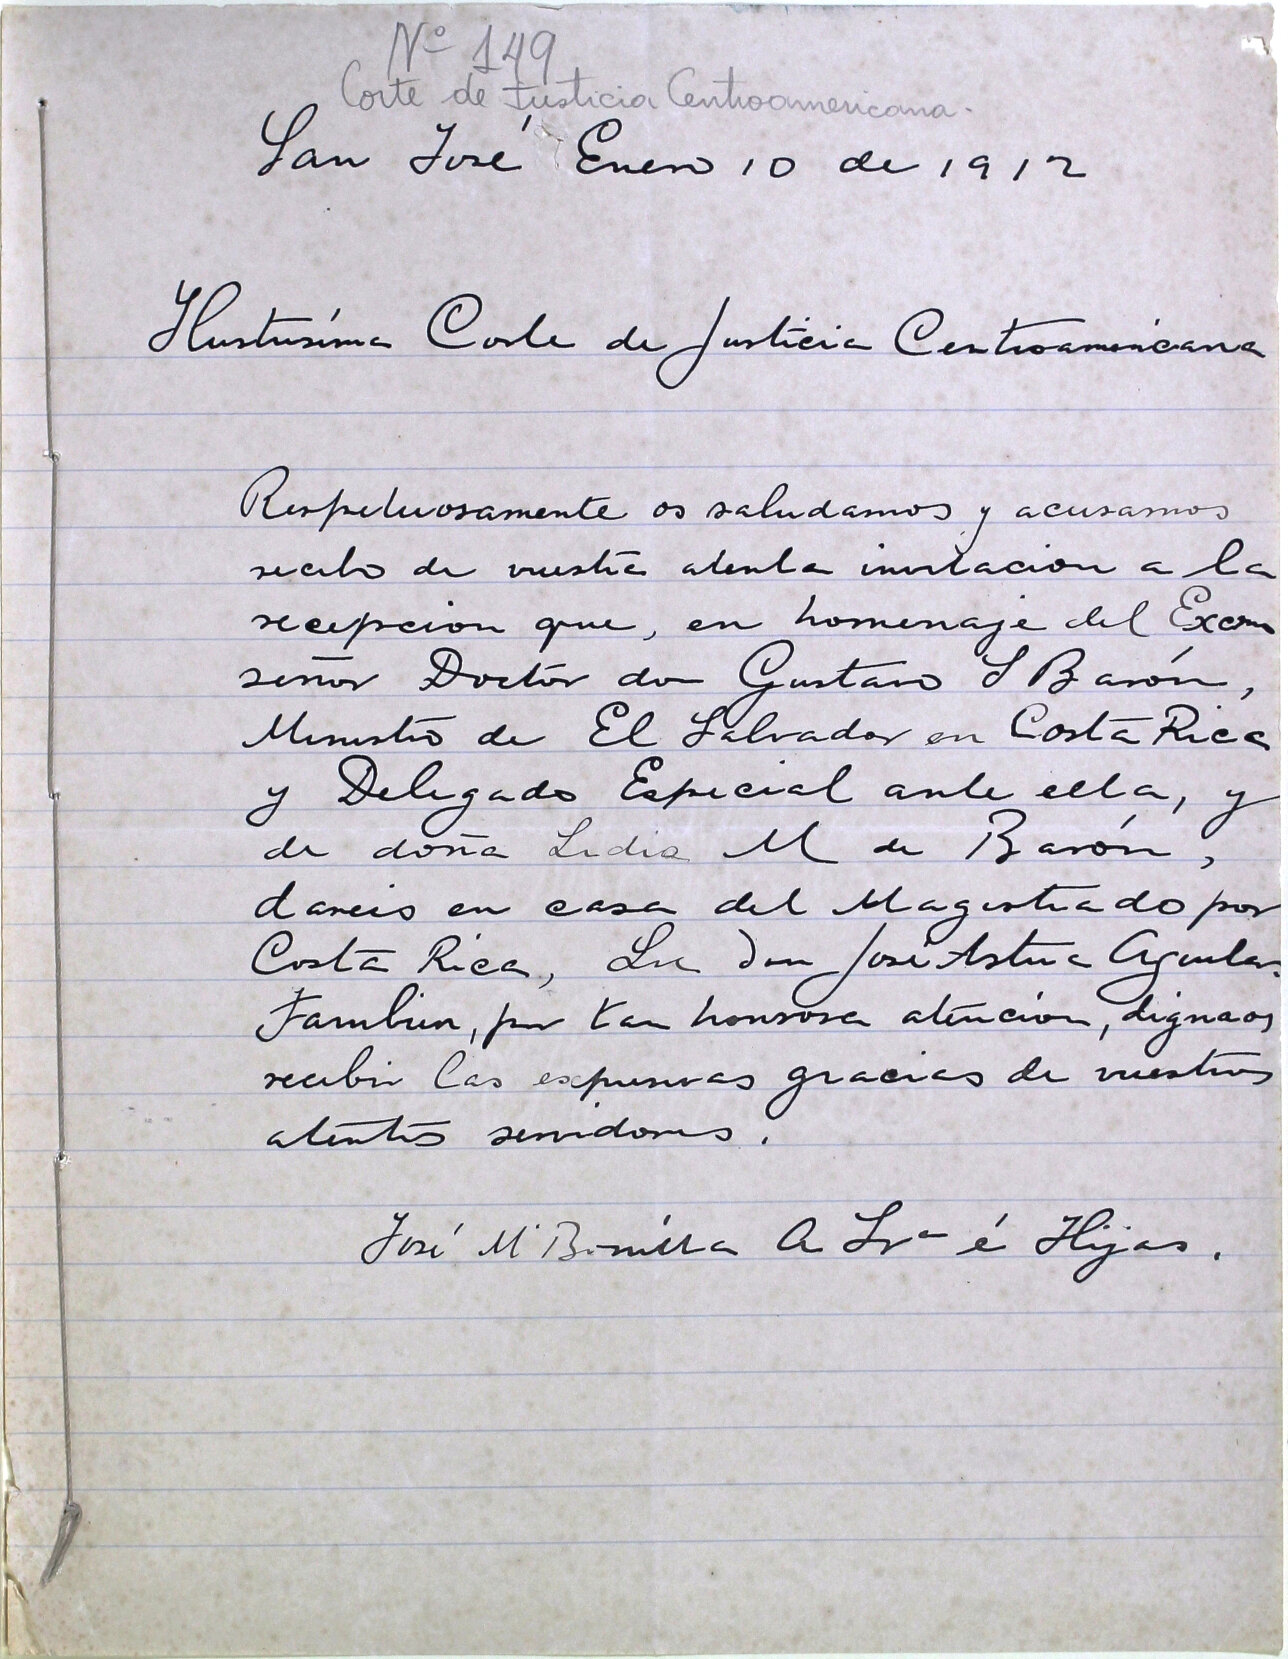 Nº 149
Corte de Justicia Centroamericana.
San José Enero 10 de 1912
Ilustrísima Corte de Justicia Centroamericana
Respetuosamente os saludamos y acusamos
recibo de vuestra atenta invitacion a la
recepcion que, en homenaje del Excmo
señor Doctor don Gustavo S Barón,
Ministro de El Salvador en Costa Rica
y Delegado Especial ante ella, y
de doña Lidia M de Barón,
dareis en casa del Magistrado por
Costa Rica, Lic don José Astua Aguilar.
Tambien, por tan honrosa atención, dignaos
recibir las expresivas gracias de vuestros
atentos servidores.
José Mª Bonilla A Srª é Hijas.